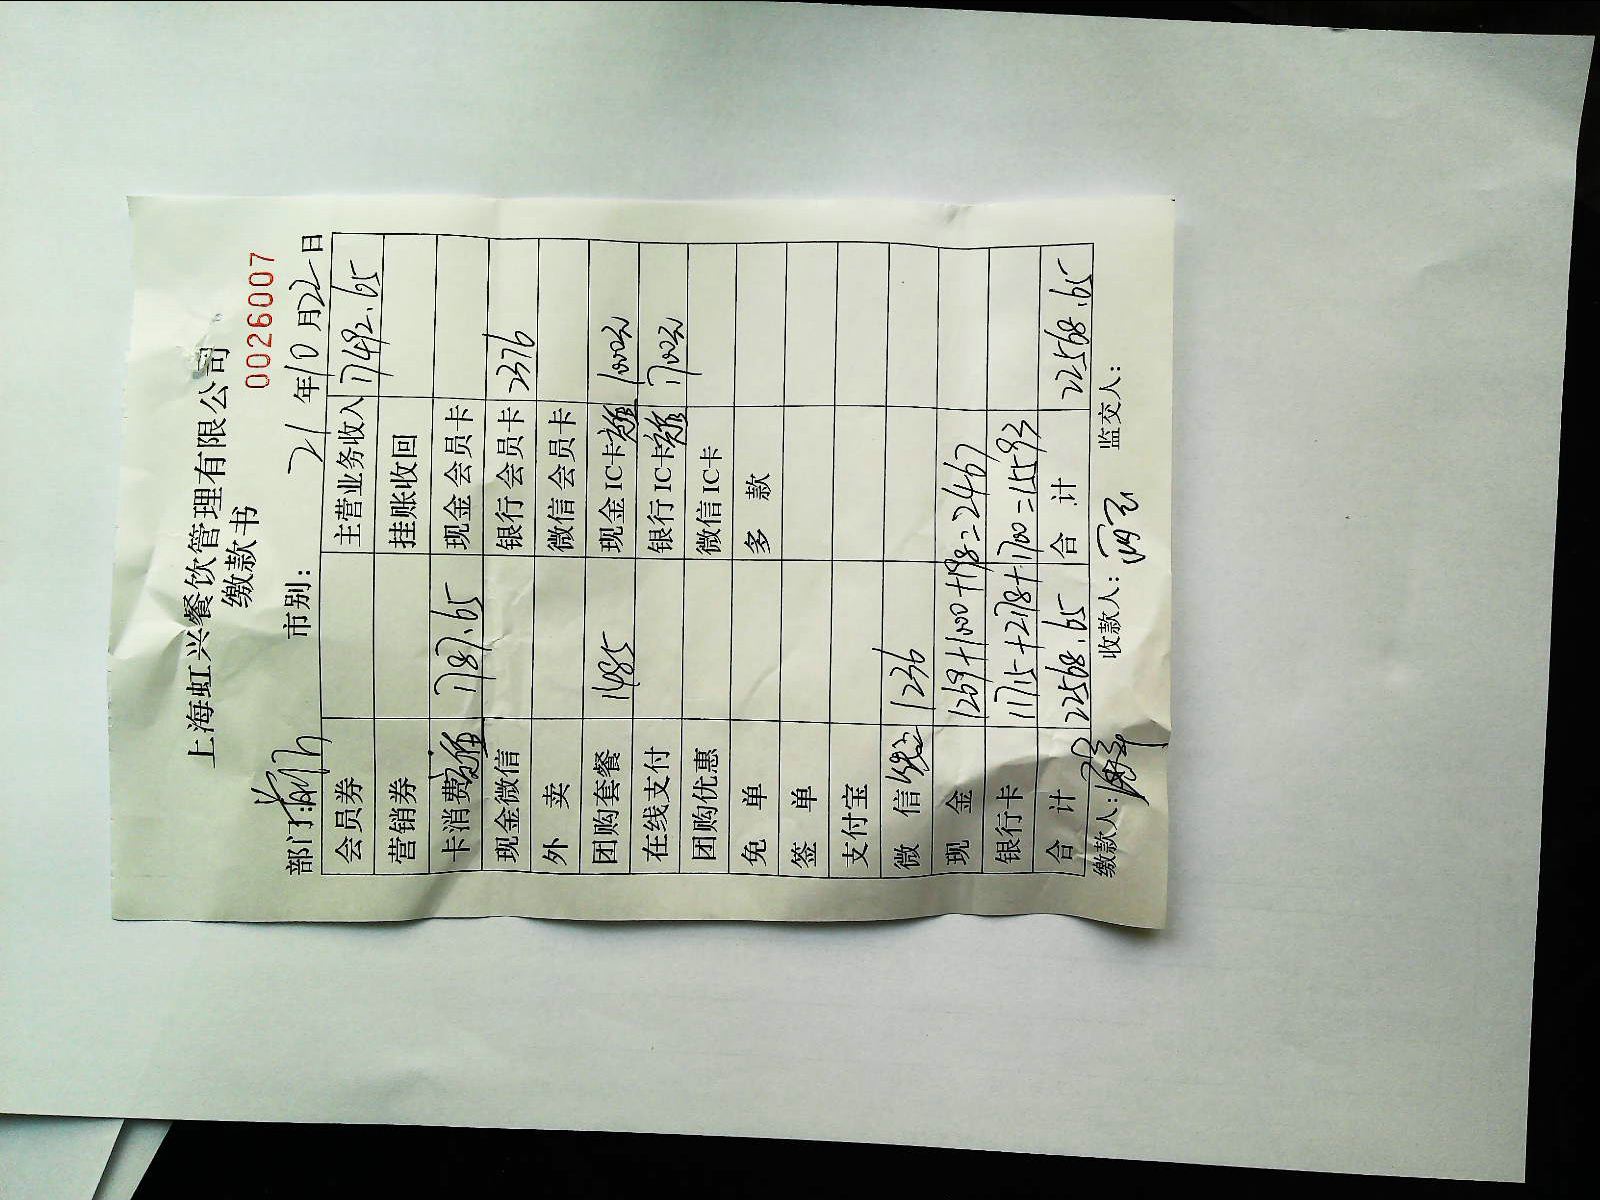 上海虹兴餐饮管理有限公司
缴款书
0026007
部门: 市别: 21年10月22日
会员券 主营业务收入 17492.65
营销券 挂账收回
卡消费 1787.65 现金会员卡
现金微信 银行会员卡 2376
外卖 微信会员卡
团购套餐 1485 现金IC卡 1000元
在线支付 银行IC卡 1700元
团购优惠 微信IC卡
免单 多款
签单
支付宝
微信 1236
现金 1269+1000+198=2467
银行卡 11715+2178+1700=15593
合计 22568.65 合计 22568.65
缴款人: 收款人: 监交人: